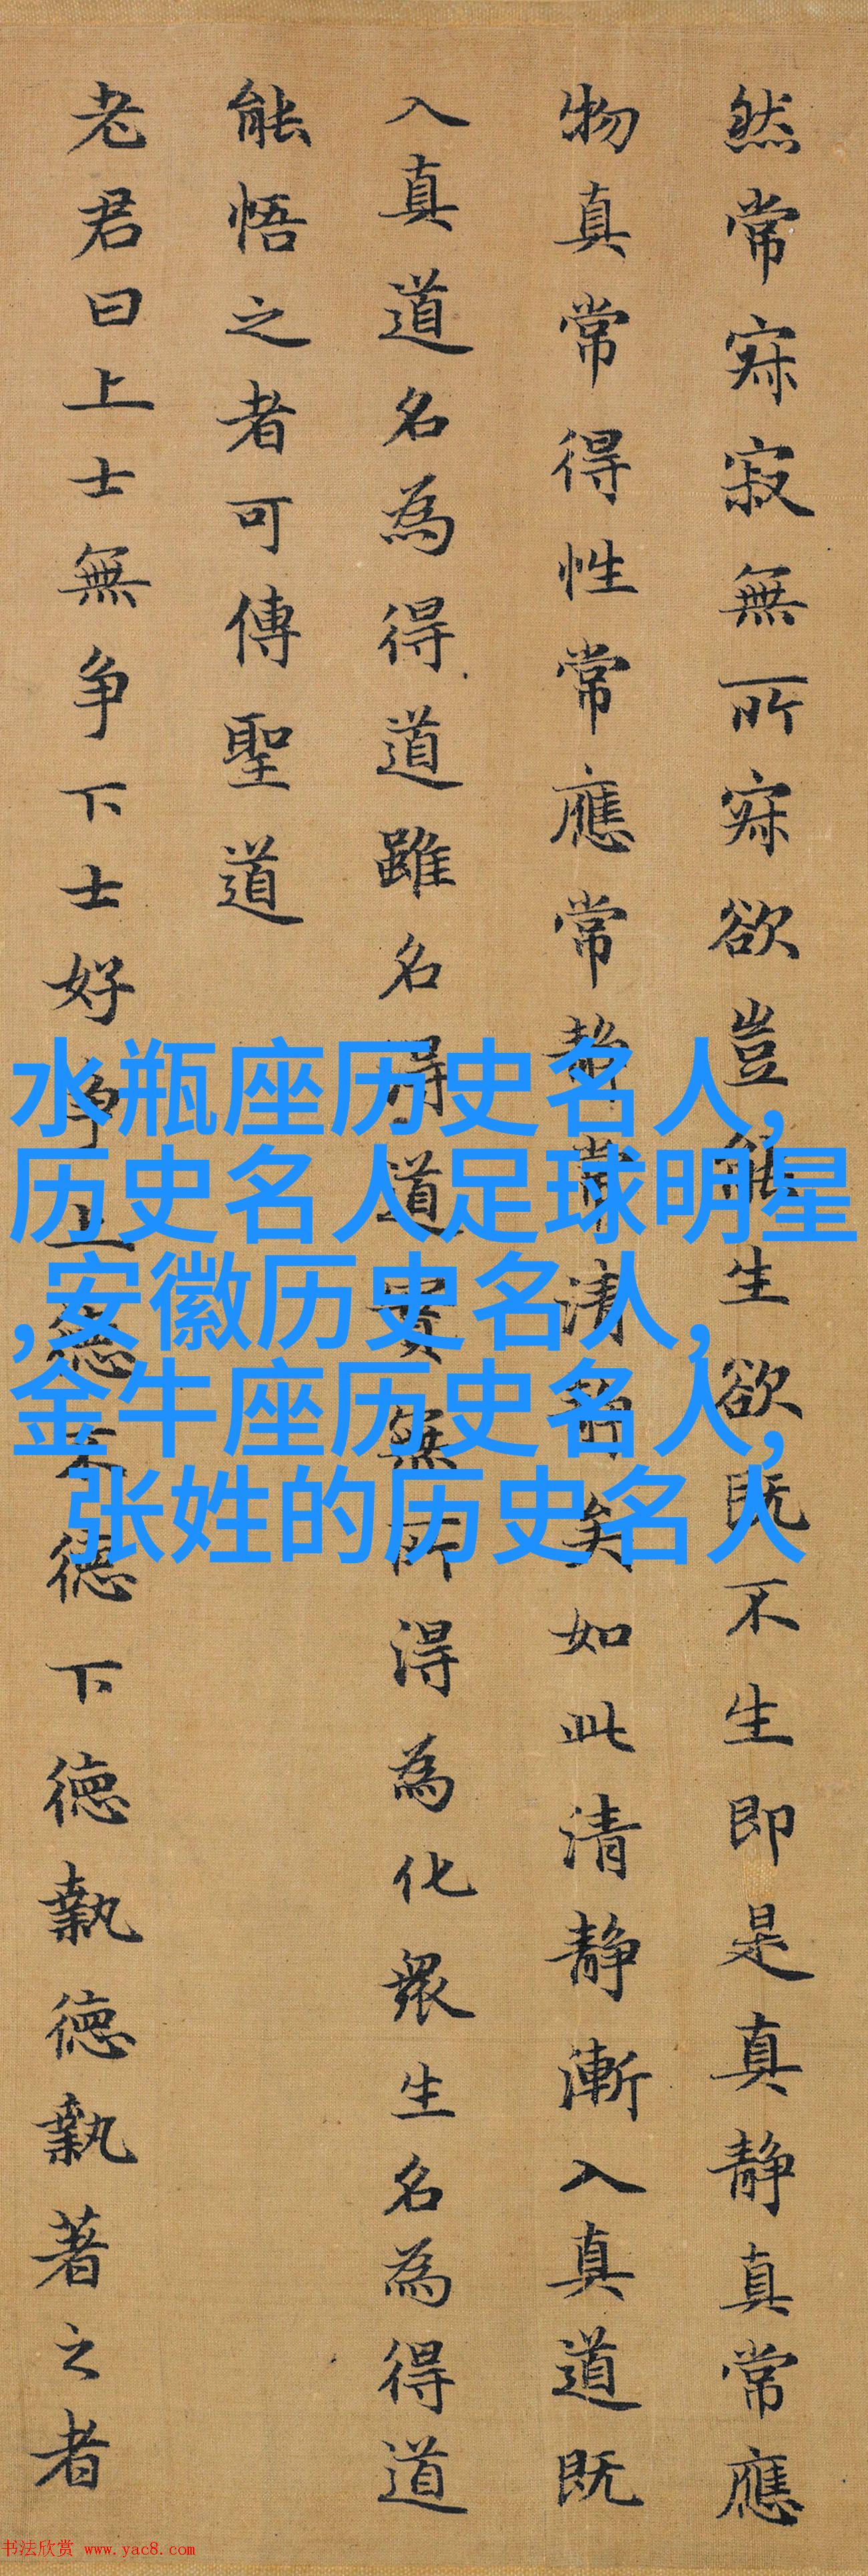 然常寂寂無所寂欲豈能生欲既不生即是真静真常應
物真常得性常應常静常清静矣如此清静漸入真道既
入真道名為得道雖名得道實無所得為化衆生名為得道
能悟之者可傳聖道
老君曰上士無争下士好争上德不德下德執德執著之者
水瓶座历史名人,
历史名人足球明星
,安徽历史名人,
金牛座历史名人,
张姓的历史名人
书法欣赏 www.yac8.com